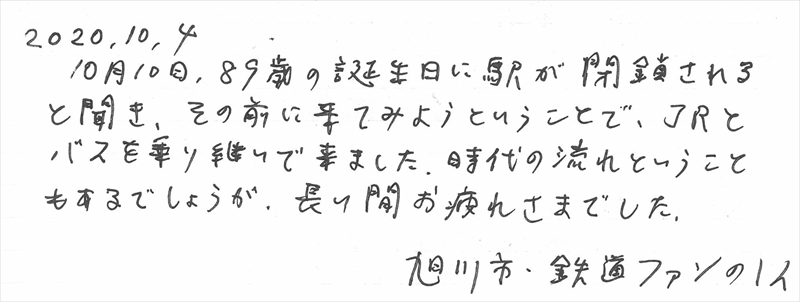 2020.10.4
10月10日、89歳の誕生日に駅が閉鎖される
と聞き、その前に来てみようということで、JRと
バスを乗り継いで来ました。時代の流れということ
もあるでしょうが、長い間お疲れさまでした。
旭川市・鉄道ファンの1人